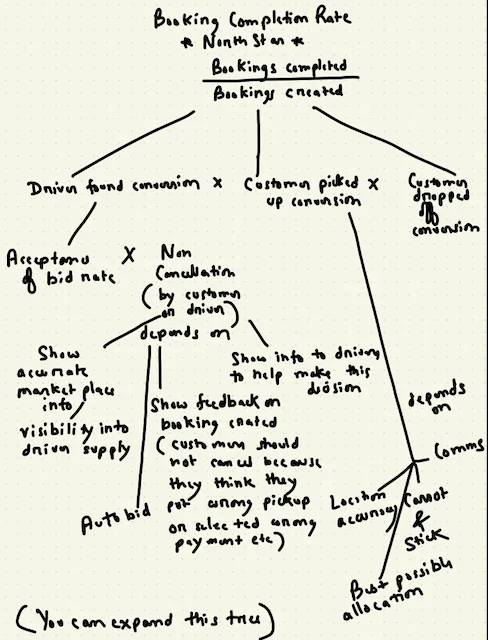 Booking Completion Rate
* North Star *
Bookings completed
Bookings created
Driver found conversion x Customer picked x
up conversion
Customer
dropped
off
conversion
Acceptance
of bid rate
X
Non
Cancellation
(by customer
or driver)
depends on
Show
accurate
market place
info/
visibility into
driver supply
Auto bid
Show feedback on
booking created
(customers should
not cancel because
they think they
put wrong pickup
or selected wrong
payment etc)
Show info to drivers
to help make this
decision
depends
on
Comms
Location
accuracy
Carrot
&
Stick
Best possible
allocation
(You can expand this tree)